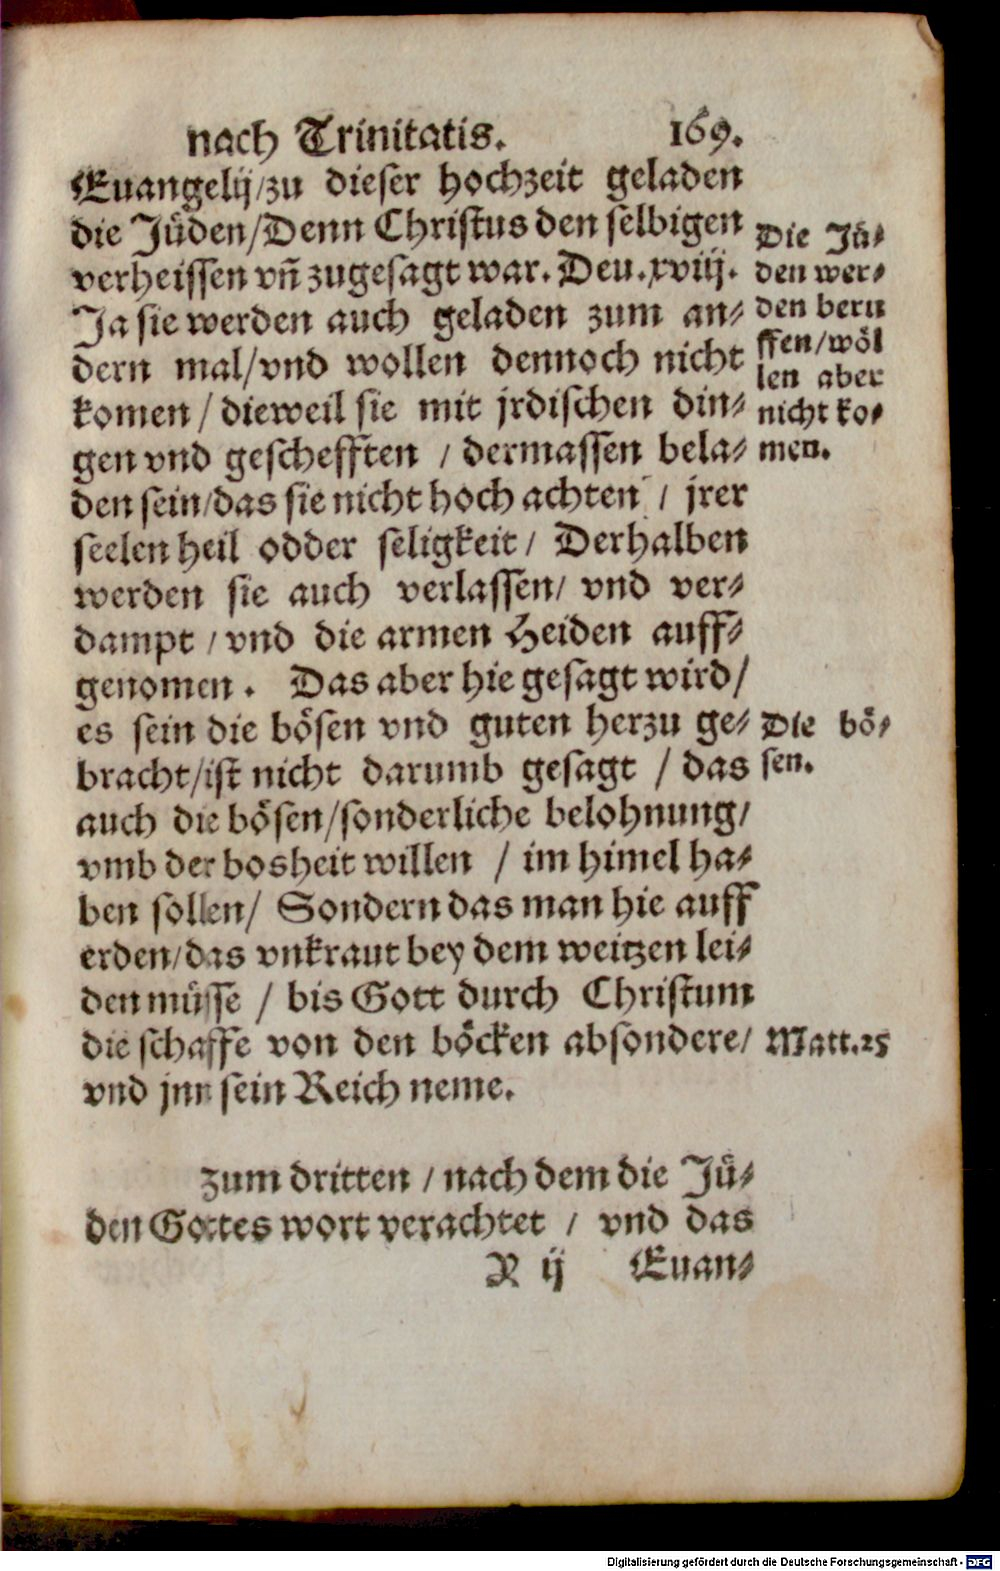 nach Trinitatis. 169.
Euangelij/zu dieser hochzeit geladen
die Jüden/Denn Christus den selbigen
verheissen vñ zugesagt war. Deu.xviij.
Ja sie werden auch geladen zum an-
dern mal/vnd wollen dennoch nicht
komen / dieweil sie mit jrdischen din-
gen vnd geschefften / dermassen bela-
den sein/das sie nicht hoch achten / jrer
seelen heil odder seligkeit / Derhalben
werden sie auch verlassen/ vnd ver-
dampt / vnd die armen Heiden auff-
genomen. Das aber hie gesagt wird/
es sein die bösen vnd guten herzu ge-
bracht/ist nicht darumb gesagt / das
auch die bösen/sonderliche belohnung/
vmb der bosheit willen / im himel ha-
ben sollen/ Sondern das man hie auff
erden/das vnkraut bey dem weitzen lei-
den müsse / bis Gott durch Christum
die schaffe von den böcken absondere/
vnd jnn sein Reich neme.
Zum dritten / nach dem die Jü-
den Gottes wort verachtet / vnd das
R ij Euan-
Die Jü-
den wer-
den beru
ffen/wöl
len aber
nicht ko-
men.
Die bö-
sen.
Matt.25
Digitalisierung gefördert durch die Deutsche Forschungsgemeinschaft - DFG